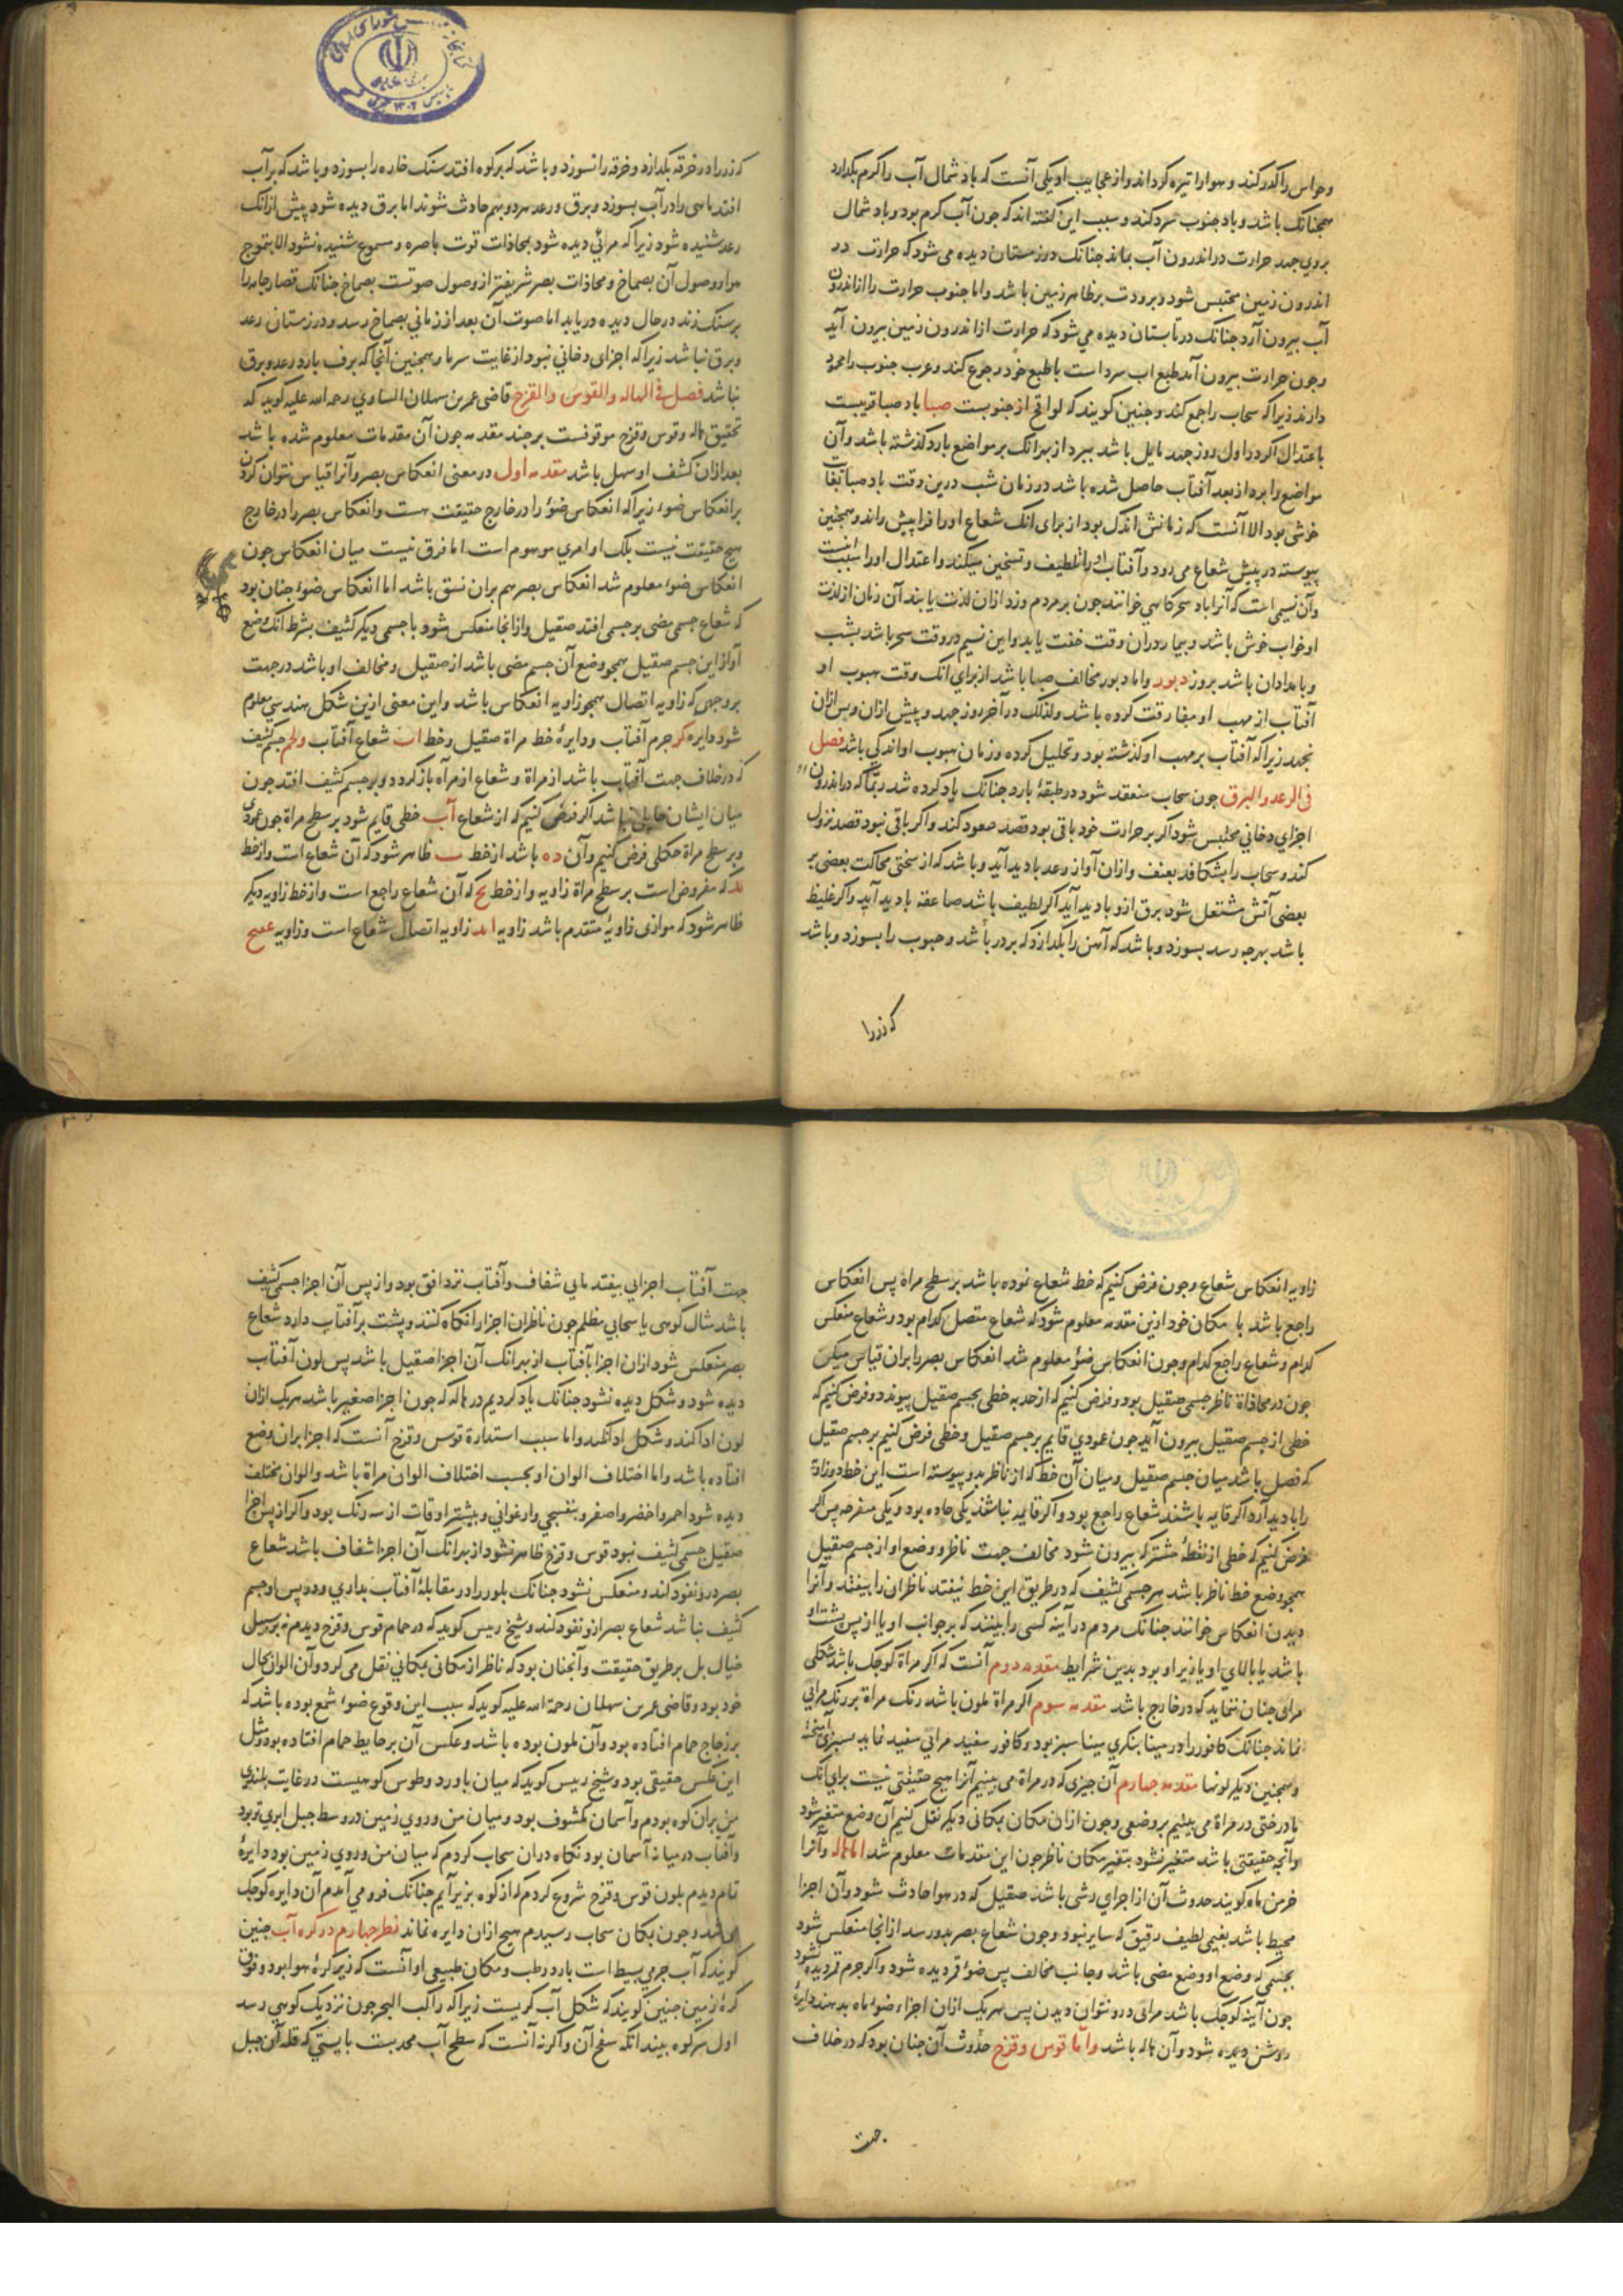 وحواس را کدر کند و هوا را تیره کرداند و از عجایب او یکی آنست که باد شمال آب را کرم بکدارد
همجنانک باشد و باد جنوب سرد کند و سبب این کفته اند که جون آب کرم بود و باد شمال
بروی جهد حرارت در اندرون آب بماند جنانک در زمستان دیده می شود که حرارت در
اندرون زمین محتبس شود و برودت بر ظاهر زمین باشد و اما جنوب حرارت را از اندرون
آب بیرون آرد جنانک در تابستان دیده می شود که حرارت از اندرون زمین بیرون آید
وجون حرارت بیرون آید طبع اب سرد است با طبع خود رجوع کند و عرب جنوب را محمود
دارند زیرا که سحاب راجع کند و جنین کویند که لواقح از جنوبست صبا باد صبا قریبست
باعتدال اکر در اول روز جهد مایل باشد ببرد از بهر انک بر مواضع بارد کذشته باشد و آن
مواضع را برد از بعد آفتاب حاصل شده باشد در زمان شب درین وقت باد صبا بغایت
خوشی بود الا آنست که زمانش اندک بود از برای انک شعاع او را فرا پیش راند و همجنین
پیوسته در پیش شعاع می رود و آفتاب او را تلطیف و تسخین میکند و اعتدال او را سبب اینست
وآن نسیمی است که آنرا باد سحرکاهی خوانند جون بر مردم وزد ازان لذت یابند آن زمان از لذت
او خواب خوش باشد و بیمار در ان وقت خفت یابد و این نسیم در وقت سحر باشد بشب
و بامدادان باشد بروز دبور و اما دبور مخالف صبا باشد از برای انک وقت هبوب او
آفتاب از مهب او مفارقت کرده باشد ولذلک در آخر روز جهد و پیش ازان و پس ازان
نجهد زیرا که آفتاب بر مهب او کذشته بود و تحلیل کرده و زمان هبوب او اندکی باشد فصل
فی الرعد والبرق جون سحاب منعقد شود در طبقهٔ بارد جنانک یاد کرده شد ربما که در اندرون
اجزای دخانی محتبس شود اکر بر حرارت خود باقی بود قصد صعود کند و اکر باقی نبود قصد نزول
کند و سحاب را بشکافد بعنف و ازان آواز رعد بادید آید و باشد که از سختی محاکت بعضی بر
بعضی آتش مشتعل شود برق ازو بادید آید اکر لطیف باشد صاعقه بادید آید و اکر غلیظ
باشد بهر جه رسد بسوزد و باشد که آهن را بکدازد که بر در باشد و جوب را بسوزد و باشد
که زر را
که زر را در خرقه بکدازد و خرقه را نسوزد و باشد که بر کوه افتد سنک خاره را بسوزد و باشد که بر آب
افتد ماهی را در آب بسوزد و برق و رعد هر دو بهم حادث شوند اما برق دیده شود پیش از انک
رعد شنیده شود زیرا که مرائی دیده شود بمحاذات قوت باصره و مسموع شنیده نشود الا بتموج
هوا و وصول آن بصماخ و محاذات بصر شریفتر از وصول صوتست بصماخ جنانک قصار جامه را
بر سنک زند در حال دیده دریابد اما صوت آن بعد از زمانی بصماخ رسد و در زمستان رعد
و برق نباشد زیرا که اجزای دخانی نبود از غایت سرما و همجنین آنجا که برف بارد رعد و برق
نباشد فصل فی الهاله والقوس والقزح قاضی عمر بن سهلان الساوی رحمه الله علیه کوید که
تحقیق هاله و قوس و قزح موقوفست بر جند مقدمه جون آن مقدمات معلوم شده باشد
بعد ازان کشف او سهل باشد مقدمه اول در معنی انعکاس بصر و آنرا قیاس نتوان کردن
بر انعکاس ضوء زیرا که انعکاس ضوء را در خارج حقیقت هست و انعکاس بصر را در خارج
هیج حقیقت نیست بلک او امری موهوم است اما فرق نیست میان انعکاس جون
انعکاس ضوء معلوم شد انعکاس بصر هم بران نسق باشد اما انعکاس ضوء جنان بود
که شعاع جسمی مضی بر جسمی افتد صقیل و از انجا منعکس شود با جسمی دیکر کثیف بشرط انک وضع
آواز این جسم صقیل همجو وضع آن جسم مضی باشد از صقیل و مخالف او باشد در جهت
بر وجهی که زاویه اتصال همجو زاویه انعکاس باشد و این معنی ازین شکل هندسی معلوم
شود دایره کر جرم آفتاب و دایرهٔ خط مراة صقیل و خط اب شعاع آفتاب و لحم جسم کثیف
که در خلاف جهت آفتاب باشد از مراة و شعاع از مرآه باز کردد و بر جسم کثیف افتد جون
میان ایشان حایلی نباشد اکر فرض کنیم که از شعاع آب خطی قایم شود بر سطح مراة جون عمودی
و بر سطح مراة حکلی فرض کنیم و آن ده باشد از خط ب ظاهر شود که آن شعاع است و از خط
بد که مفروض است بر سطح مراة زاویه و از خط بح که آن شعاع راجع است و از خط زاویه دیکر
ظاهر شود که موازی زاویهٔ متقدم باشد زاویه ابد زاویه اتصال شعاع است و زاویه ححح
زاویه انعکاس شعاع وجون فرض کنیم که خط شعاع نموده باشد بر سطح مراة پس انعکاس
راجع باشد با مکان خود ازین مقدمه معلوم شود که شعاع متصل کدام بود و شعاع منعکس
کدام و شعاع راجع کدام وجون انعکاس ضوء معلوم شد انعکاس بصر را بران قیاس میکن
جون در محاذاة ناظر جسمی صقیل بود و فرض کنیم که از حدبه خطی بجسم صقیل پیوندد و فرض کنیم که
خطی از جسم صقیل بیرون آید جون عمودی قایم بر جسم صقیل و خطی فرض کنیم بر جسم صقیل
که فصل باشد میان جسم صقیل و میان آن خط که از ناظر بدو پیوسته است این خط دو زاویه
را بادید آرد اکر قایمه باشند شعاع راجع بود و اکر قایمه نباشند یکی حاده بود و یکی منفرجه پس اکر
فرض کنیم که خطی از نقطهٔ مشترک بیرون شود مخالف جهت ناظر و وضع او از جسم صقیل
همجو وضع خط ناظر باشد هر جسمی کثیف که در طریق این خط بیفتد ناظران را بیفتد و آنرا
دیدن انعکاس خوانند جنانک مردم در آینه کسی را بینند که بر جوانب او یا از پس پشت او
باشد یا بالای او یا زیر او بود بدین شرایط مقدمه دوم آنست که اکر مراة کوجک باشد شکلی
مرائی جنان ننماید که در خارج باشد مقدمه سوم اکر مراة ملون باشد رنک مراة بر رنک مرائی
نماند جنانک کافور را در مینا بنکری مینا سبز بود و کافور سفید مرائی سفید نماید بسبزی آمیخته
و همجنین دیکر لونها مقدمه جهارم آن جیزی که در مراة می بینیم آنرا هیج حقیقتی نیست برای انک
ما درختی در مراة می بینیم بر وضعی وجون ازان مکان بمکانی دیکر نقل کنیم آن وضع متغیر شود
و آنجه حقیقتی باشد متغیر نشود بتغیر مکان ناظر جون این مقدمات معلوم شد اما هاله و آنرا
خرمن ماه کویند حدوث آن از اجزای رشی باشد صقیل که در هوا حادث شود و آن اجزا
محیط باشد بغیمی لطیف رقیق که سایر نبود وجون شعاع بصر بدو رسد از انجا منعکس شود
بجسمی که وضع او وضع مضی باشد و جانب مخالف پس ضوء قمر دیده شود و اکر جرم قمر دیده نشود
جون آینه کوجک باشد مرائی درو نتوان دیدن پس هر یک ازان اجزاء ضوء ماه بدهند دایرهٔ
روشن دیده شود و آن هاله باشد و اما قوس و قزح حدوث آن جنان بود که در خلاف
جهت
جهت آفتاب اجزایی بیفتد مایی شفاف و آفتاب نزد افق بود و از پس آن اجزا جسمی کثیف
باشد مثال کوهی یا سحابی مظلم جون ناظران اجزا را نکاه کنند و پشت بر آفتاب دارد شعاع
بصر منعکس شود ازان اجزا بآفتاب از بهر انک آن اجزا صقیل باشد پس لون آفتاب
دیده شود و شکل دیده نشود جنانک یاد کردیم در هاله که جون اجزا صغیر باشد هر یک ازان
لون ادا کند و شکل ادا نکند و اما سبب استدارة قوس و قزح آنست که اجزا بران وضع
افتاده باشد و اما اختلاف الوان او بحسب اختلاف الوان مراة باشد و الوان مختلف
دیده شود احمر و اخضر و اصفر و بنفسجی و ارغوانی و بیشتر اوقات از سه رنک بود و اکر از پس اجزا
صقیل جسمی کثیف نبود قوس و قزح ظاهر نشود از بهر انک آن اجزا شفاف باشد شعاع
بصر درو نفوذ کند و منعکس نشود جنانک بلور را در مقابلهٔ آفتاب بداری و در پس او جسم
کثیف نباشد شعاع بصر ازو نفوذ کند و شیخ رییس کوید که در حمام قوس و قزح دیدم نه بر سبیل
خیال بل بر طریق حقیقت و آنجنان بود که ناظر از مکانی بمکانی نقل می کرد و آن الوان بحال
خود بود و قاضی عمر بن سهلان رحمة الله علیه کوید که سبب این وقوع ضوء شمع بوده باشد که
بر زجاج حمام افتاده بود و آن ملون بوده باشد و عکس آن بر حایط حمام افتاده بود و مثل
این عکس حقیقی بود و شیخ رییس کوید که میان باورد و طوس کوهیست در غایت بلندی
من بران کوه بودم و آسمان مکشوف بود و میان من و روی زمین در وسط جبل ابری تر بود
و آفتاب در میانه آسمان بود نکاه دران سحاب کردم که میان من و روی زمین بود دایرهٔ
تمام دیدم بلون قوس و قزح شروع کردم که از کوه بزیر آیم جنانک فرو می آمدم آن دایره کوجک
می شد وجون بمکان سحاب رسیدم هیج ازان دایره نماند نظر جهارم در کره آب جنین
کویند که آب جرمی بسیط است بارد و رطب و مکان طبیعی او آنست که زیر کرهٔ هوا بود و فوق
کرهٔ زمین جنین کویند که شکل آب کریست زیرا که راکب البحر جون نزدیک کوهی رسد
اول سر کوه بیند انکه سفح آن و اکر نه آنست که سطح آب محدبست بایستی که قله آن جبل